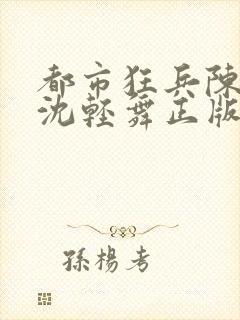 都市狂兵陳
沈輕舞正版
孫楊考